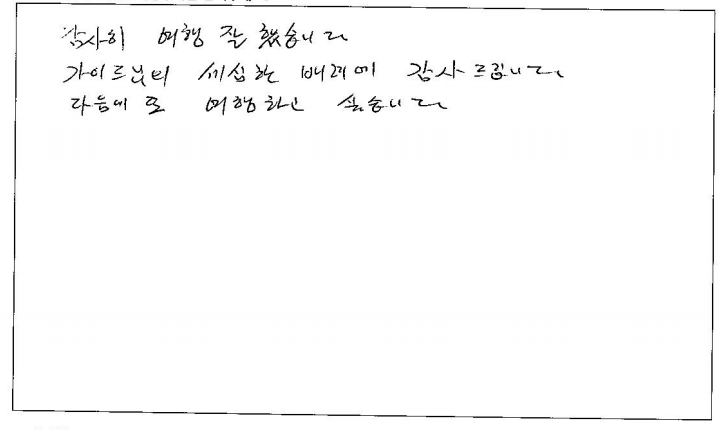 감사히 여행 잘 했습니다
가이드님의 세심한 배려에 감사드립니다
다음에 또 여행하고 싶습니다